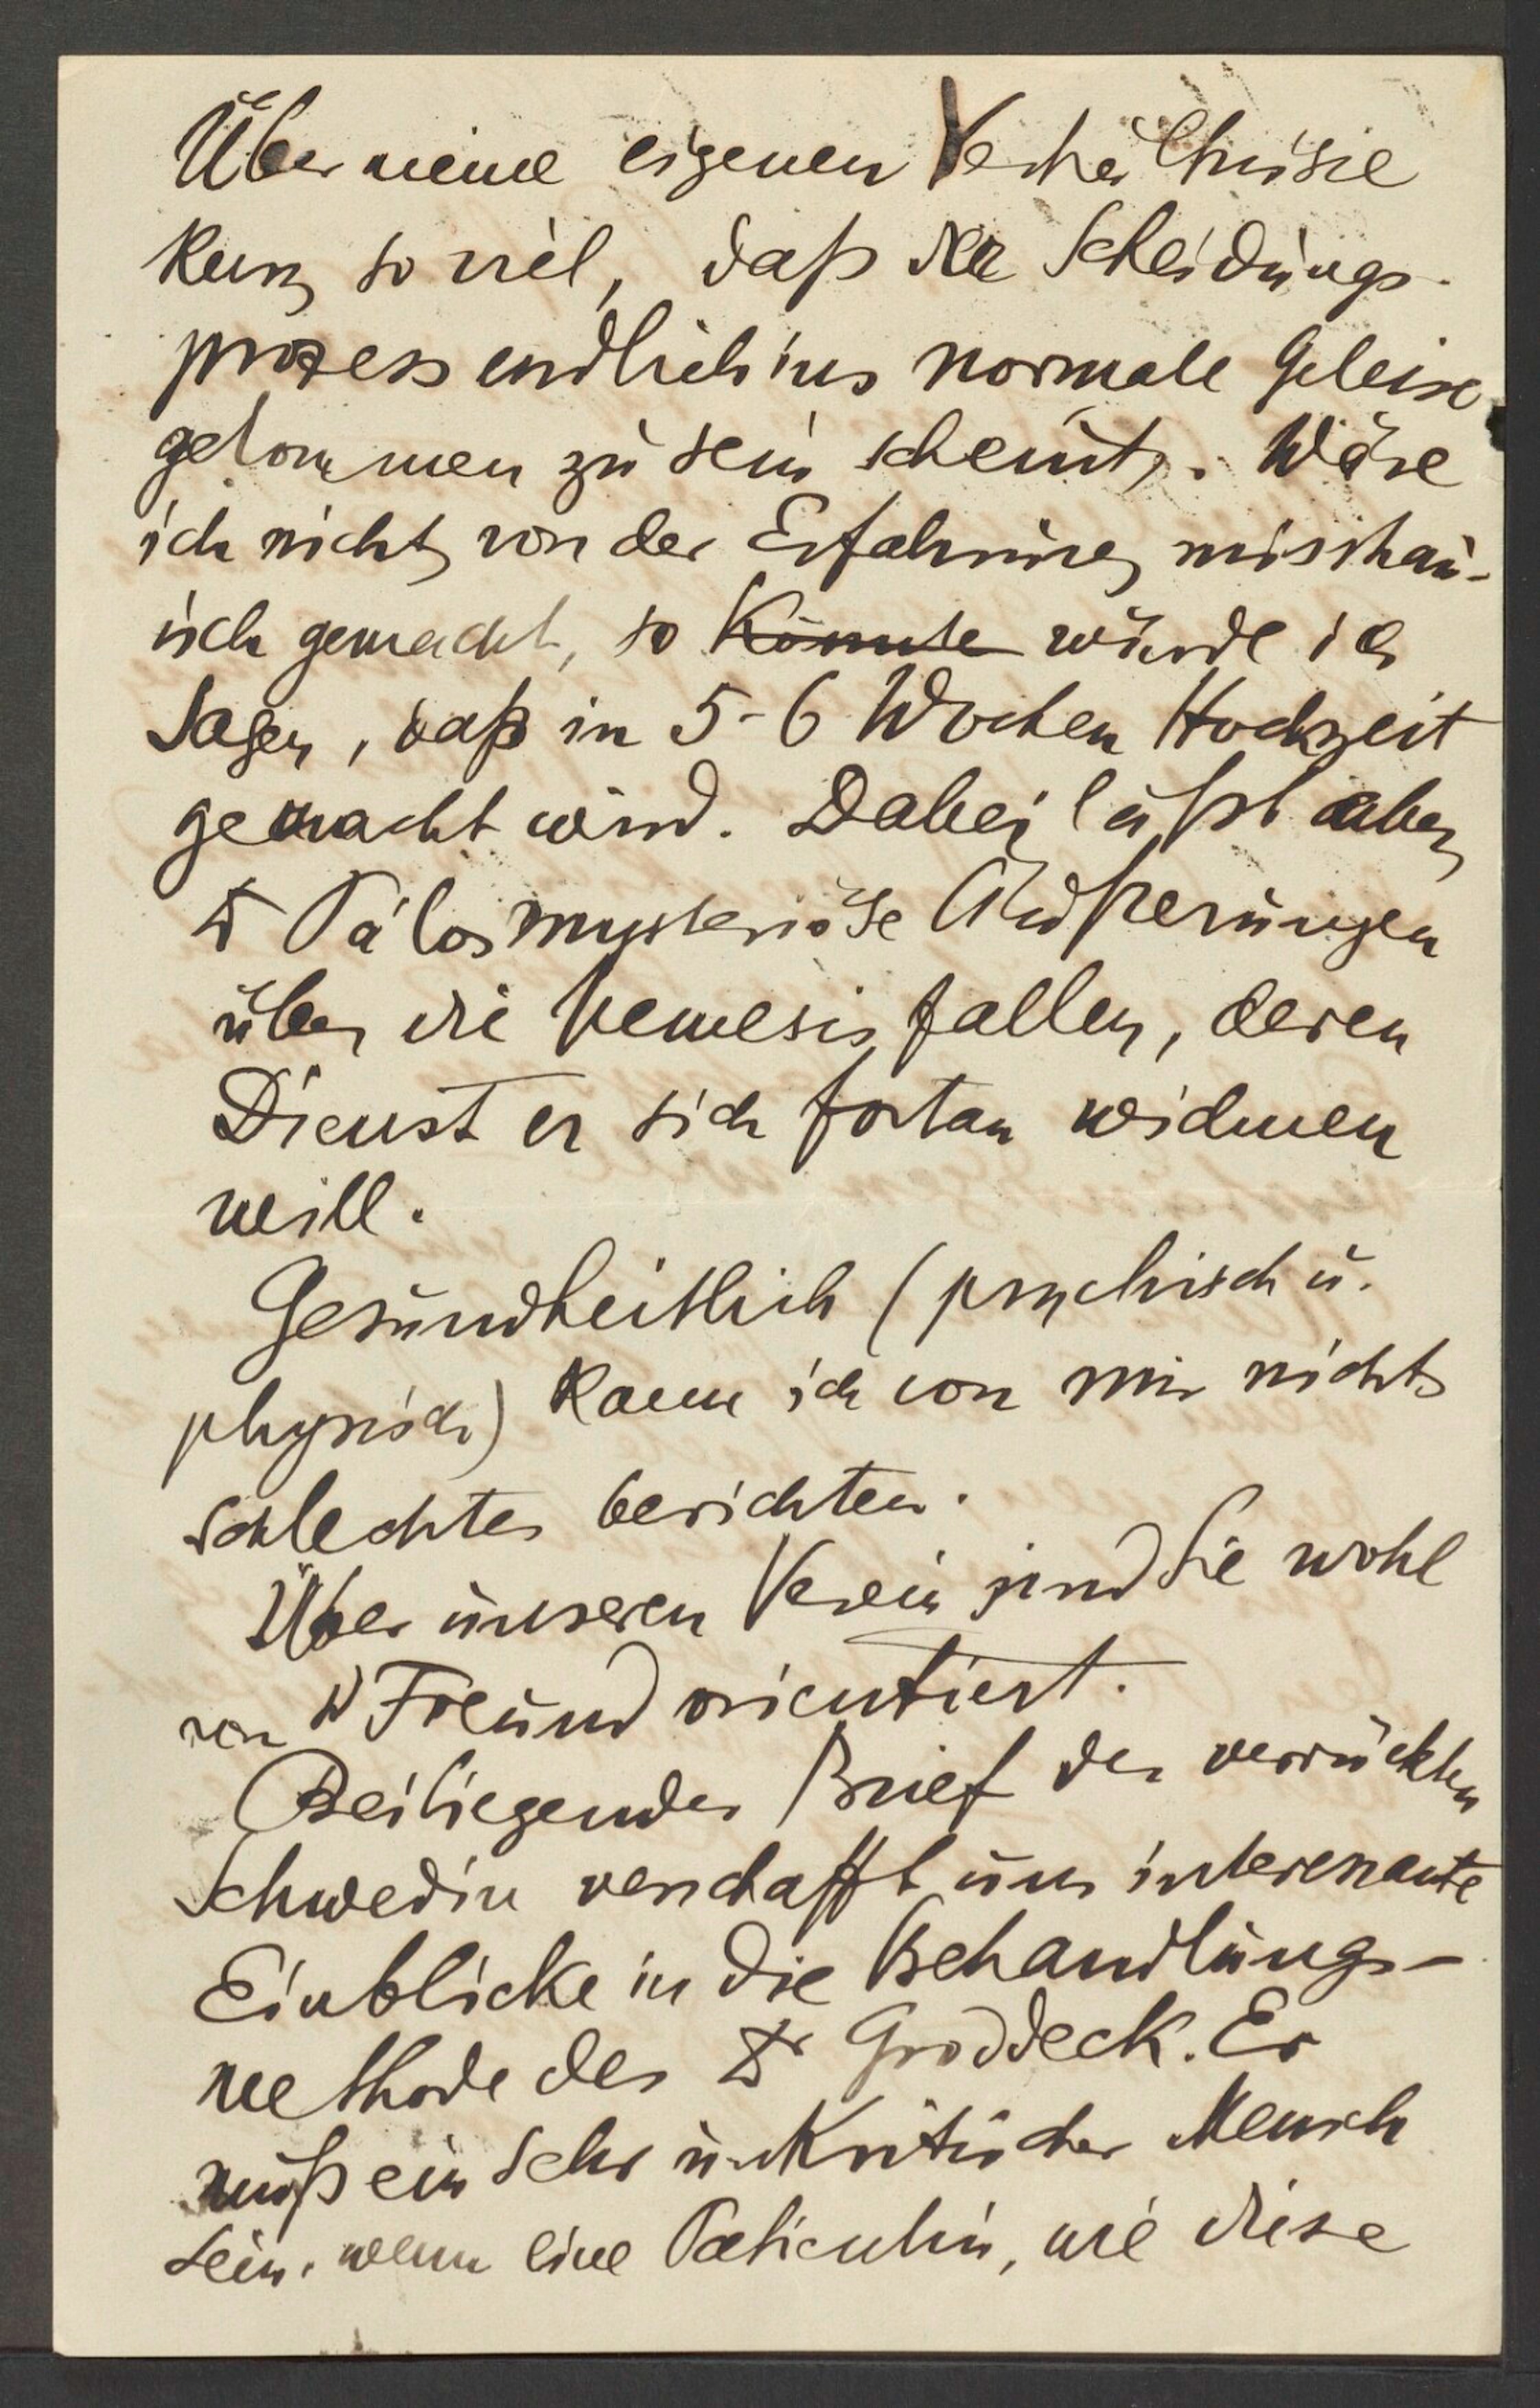 Über meine eigenen Verhältnisse
kurz so viel, daß der Scheidungs-
prozess endlich ins normale Geleise
gekommen zu sein scheint. Wäre
ich nicht von der Erfahrung misstrau-
isch gemacht, so könnte würde ich
sagen, daß in 5-6 Wochen Hochzeit
gemacht wird. Dabei läßt aber
Dr Pálos mysteriöse Äußerungen
über die Nemesis fallen, deren
Dienst er sich fortan widmen
will.
Gesundheitlich (psychisch u.
physisch) kann ich von mir nichts
schlechtes berichten.
Über unseren Verein sind Sie wohl
von Dr Freund orientiert.
Beiliegender Brief der verrückten
Schwedin verschafft uns interessante
Einblicke in die Behandlungs-
methode des Dr Groddeck. Er
muß ein sehr unkritischer Mensch
sein, wenn eine Patientin, wie diese